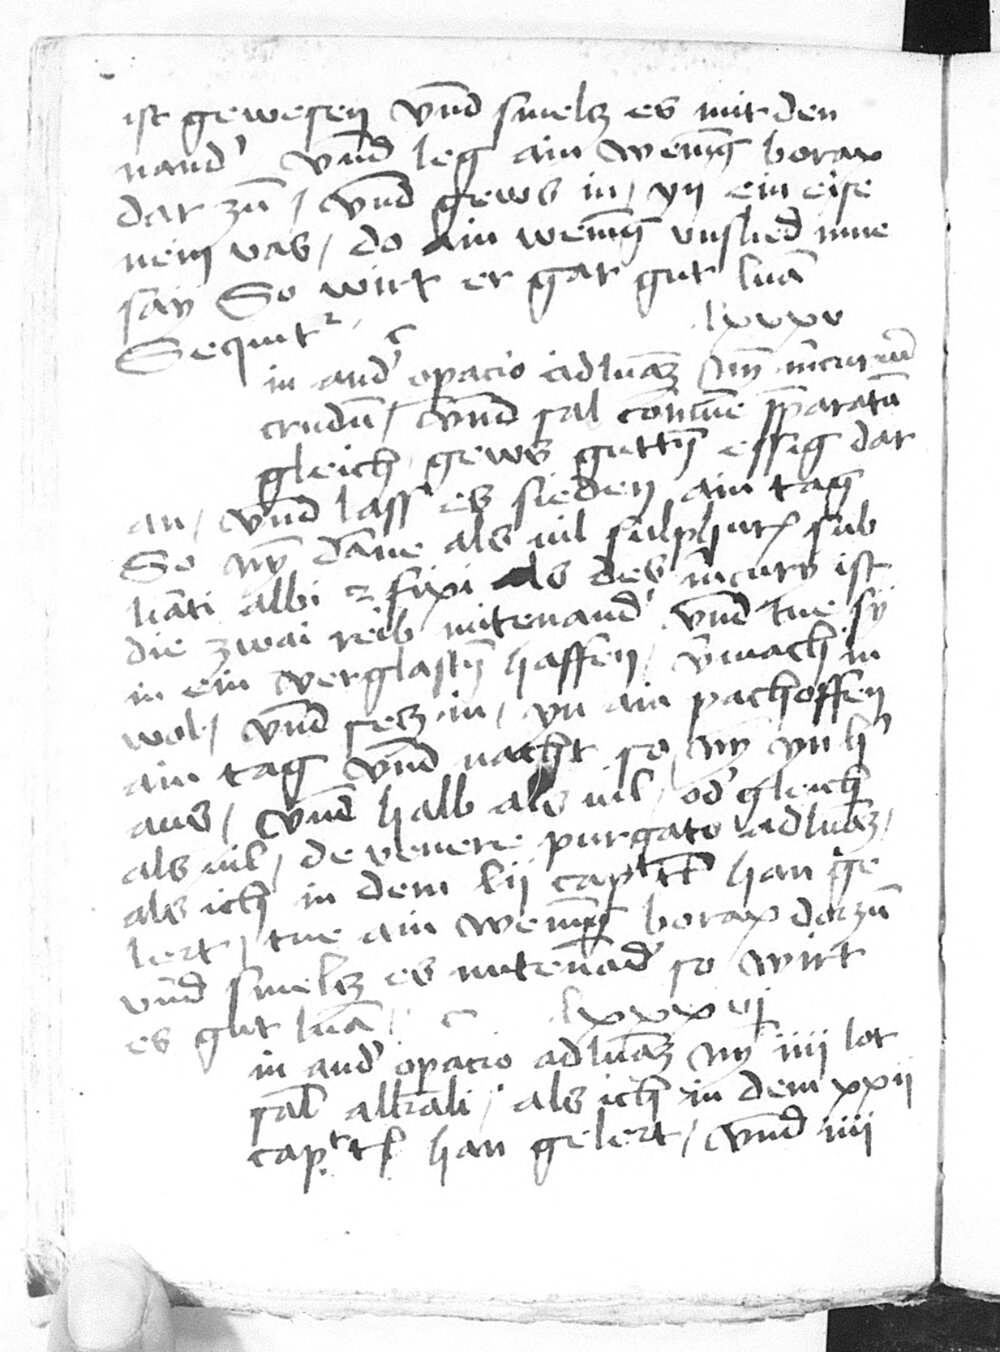 ist gewesen vnd smelcz es mit den
nand' vnd leg ain wenig borax
dar zů / vnd gews in / yn ein eise
nem vas / do ain wenig vnslid inne
say So wirt er gar gut lunā
Sequit² c lxxxv
in and' opacio ad lunaʒ Nȳ m̄curiū
crudū / vnd sal comūe p̄paratū
gleich gews guttn̄ essig dar
an / vnd lass es sieden ain tag
So nȳ dāne als uil sulphur sub
limāti albi ⁊ fixi als des m̄cury ist
die zwai reib mitenand' vnd tue sy
in ein verglastn̄ haffen / v̄mach in
wol / vnd secz in / yn ain pachoffen
ain tag vnd nacht so nȳ yn h'
aus / vnd halb als uil / od' gleich
als uil / de venere purgato ad lunaʒ /
als ich in dem lij cap̄ᵗ han ge
lert / tue ain wenig borax dorzů
vnd smelcz es mitenād' so wirt
es gut lunā / c lxxxvj
in and' opacio ad lunaʒ nȳ iiij lot
sal alkali / als ich in dem xxij
cap.ᵗ han gelert / vnd iiij